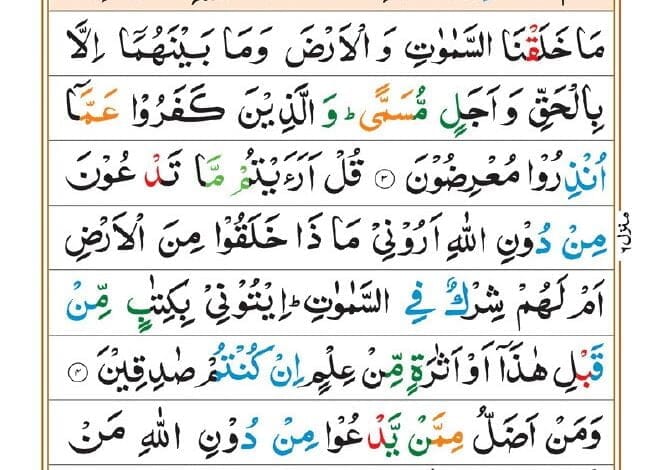 مَا خَلَقْنَا السَّمٰوٰتِ وَ الْاَرْضَ وَمَا بَيْنَهُمَاۤ اِلَّا
بِالْحَقِّ وَ اَجَلٍ مُّسَمًّىؕ وَ الَّذِيْنَ كَفَرُوْا عَمَّاۤ
اُنْذِرُوْا مُعْرِضُوْنَ ۝۳ قُلْ اَرَءَيْتُمْ مَّا تَدْعُوْنَ
مِنْ دُوْنِ اللّٰهِ اَرُوْنِيْ مَا ذَا خَلَقُوْا مِنَ الْاَرْضِ
اَمْ لَهُمْ شِرْكٌ فِي السَّمٰوٰتِؕ اِيْتُوْنِيْ بِكِتٰبٍ مِّنْ
قَبْلِ هٰذَاۤ اَوْ اَثٰرَةٍ مِّنْ عِلْمٍ اِنْ كُنْتُمْ صٰدِقِيْنَ ۝۴
وَمَنْ اَضَلُّ مِمَّنْ يَّدْعُوْا مِنْ دُوْنِ اللّٰهِ مَنْ
منزل۶